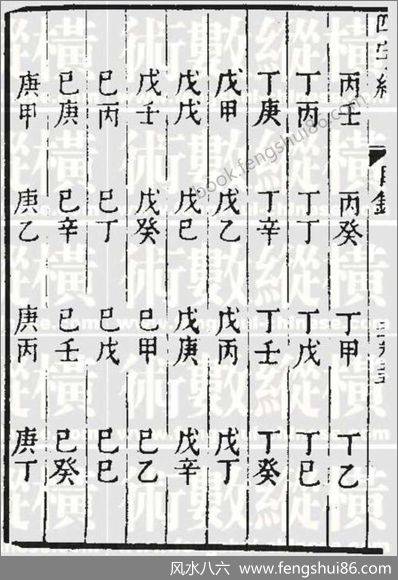 四字經 目錄
丙壬 丙癸 丁甲 丁乙
丁丙 丁丁 丁戊 丁巳
丁庚 丁辛 丁壬 丁癸
戊甲 戊乙 戊丙 戊丁
戊戊 戊巳 戊庚 戊辛
戊壬 戊癸 巳甲 巳乙
巳丙 巳丁 巳戊 巳巳
巳庚 巳辛 巳壬 巳癸
庚甲 庚乙 庚丙 庚丁
術數縱橫
book.fengshui86.com
风水八六 www.fengshui86.com